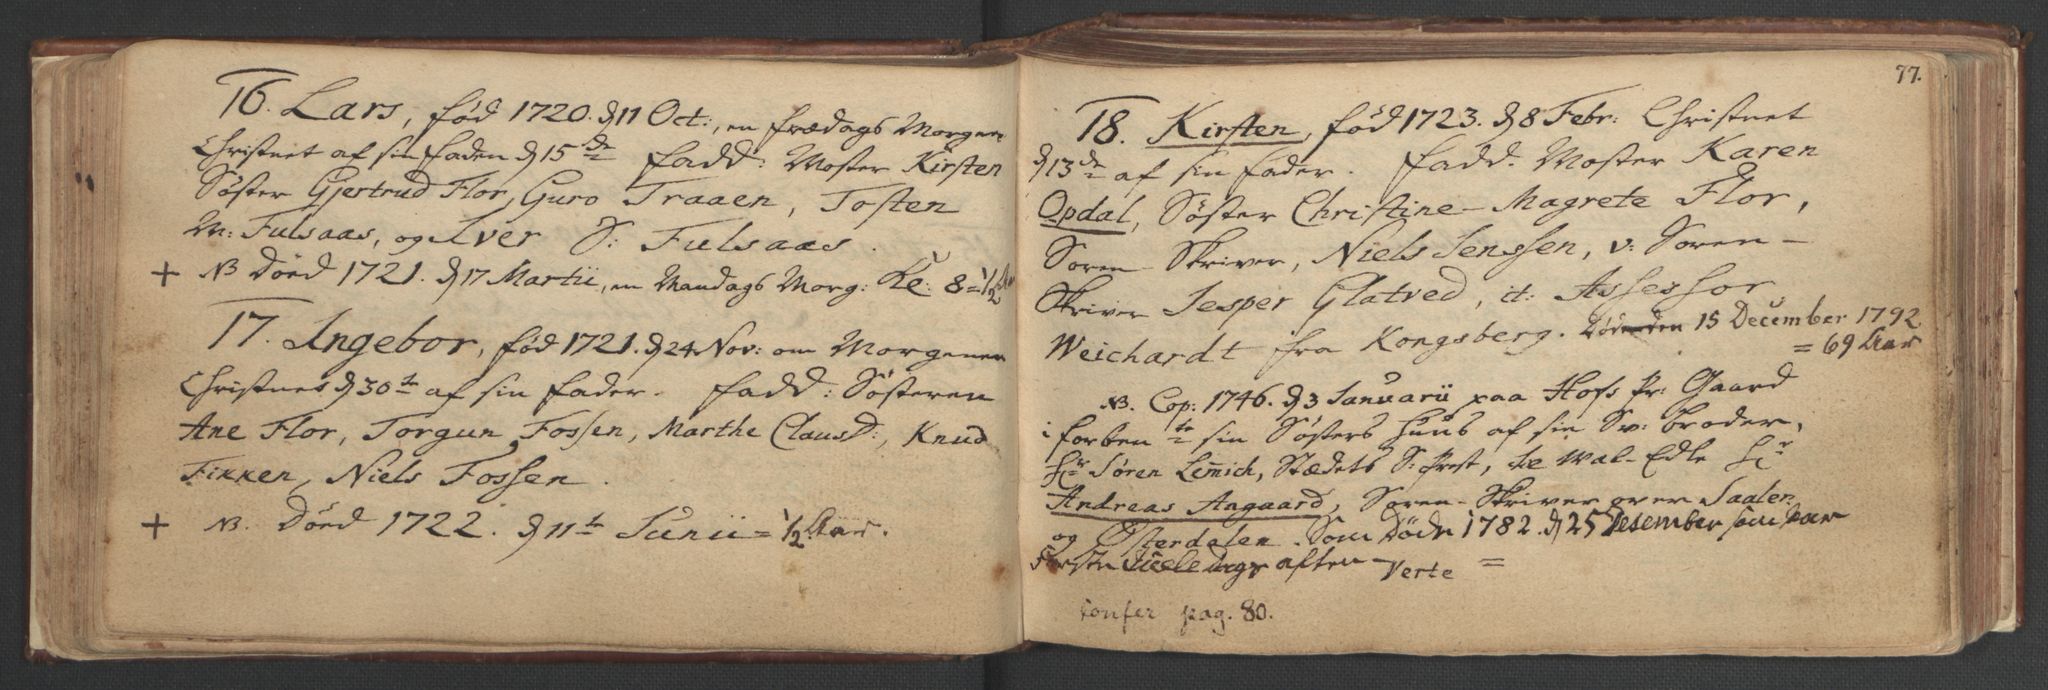 16. Lars, fød 1720. d 11 Oct:, en Fredags Morgen
Christnet af sin Fader d 15de Fadd: Moster Kirsten
Søster Gjertrud Flor, Guro Traaen, Tosten
M: Fulsaas, og Iver S: Fulsaas.
+ NB Døed 1721. d 17 Martii, en Mandags Morg: Kl: 8 = 1/2 Aar
17. Ingebor, fød 1721. d 24 Nov: om Morgenen
Christnes d 30te af sin Fader. Fadd: Søsteren
Ane Flor, Torgun Fossen, Marthe Claus D:, Knud
Fikken, Niels Fossen.
+ NB. Døed 1722. d 11te Junii = 1/2 Aar.
77.
18. Kirsten, fød 1723. d 8 Febr: Christnet
d 13de af sin Fader. Fadd: Moster Karen
Opdal, Søster Christine Magrete Flor,
Soren Skriver, Niels Jenssen, v: Soren-
Skriver Jesper Glatved, it: Assessor
Weichardt fra Kongsberg. Døde den 15 December 1792
= 69 Aar
NB. Cop: 1746. d 3 Januarii paa Hofs Pr: Gaard
i forben te sin Søsters Huus af sin Sv: broder,
Hr Søren Lemich, Stædets S: Prest, de Wal-Edle Hr
Andreas Aagaard, Soren-Skriver over Saalen
og Østerdalen. Som Døde 1782. d 25 Desember som var
første Juele dags aften- Verte =
Confer pag. 80.